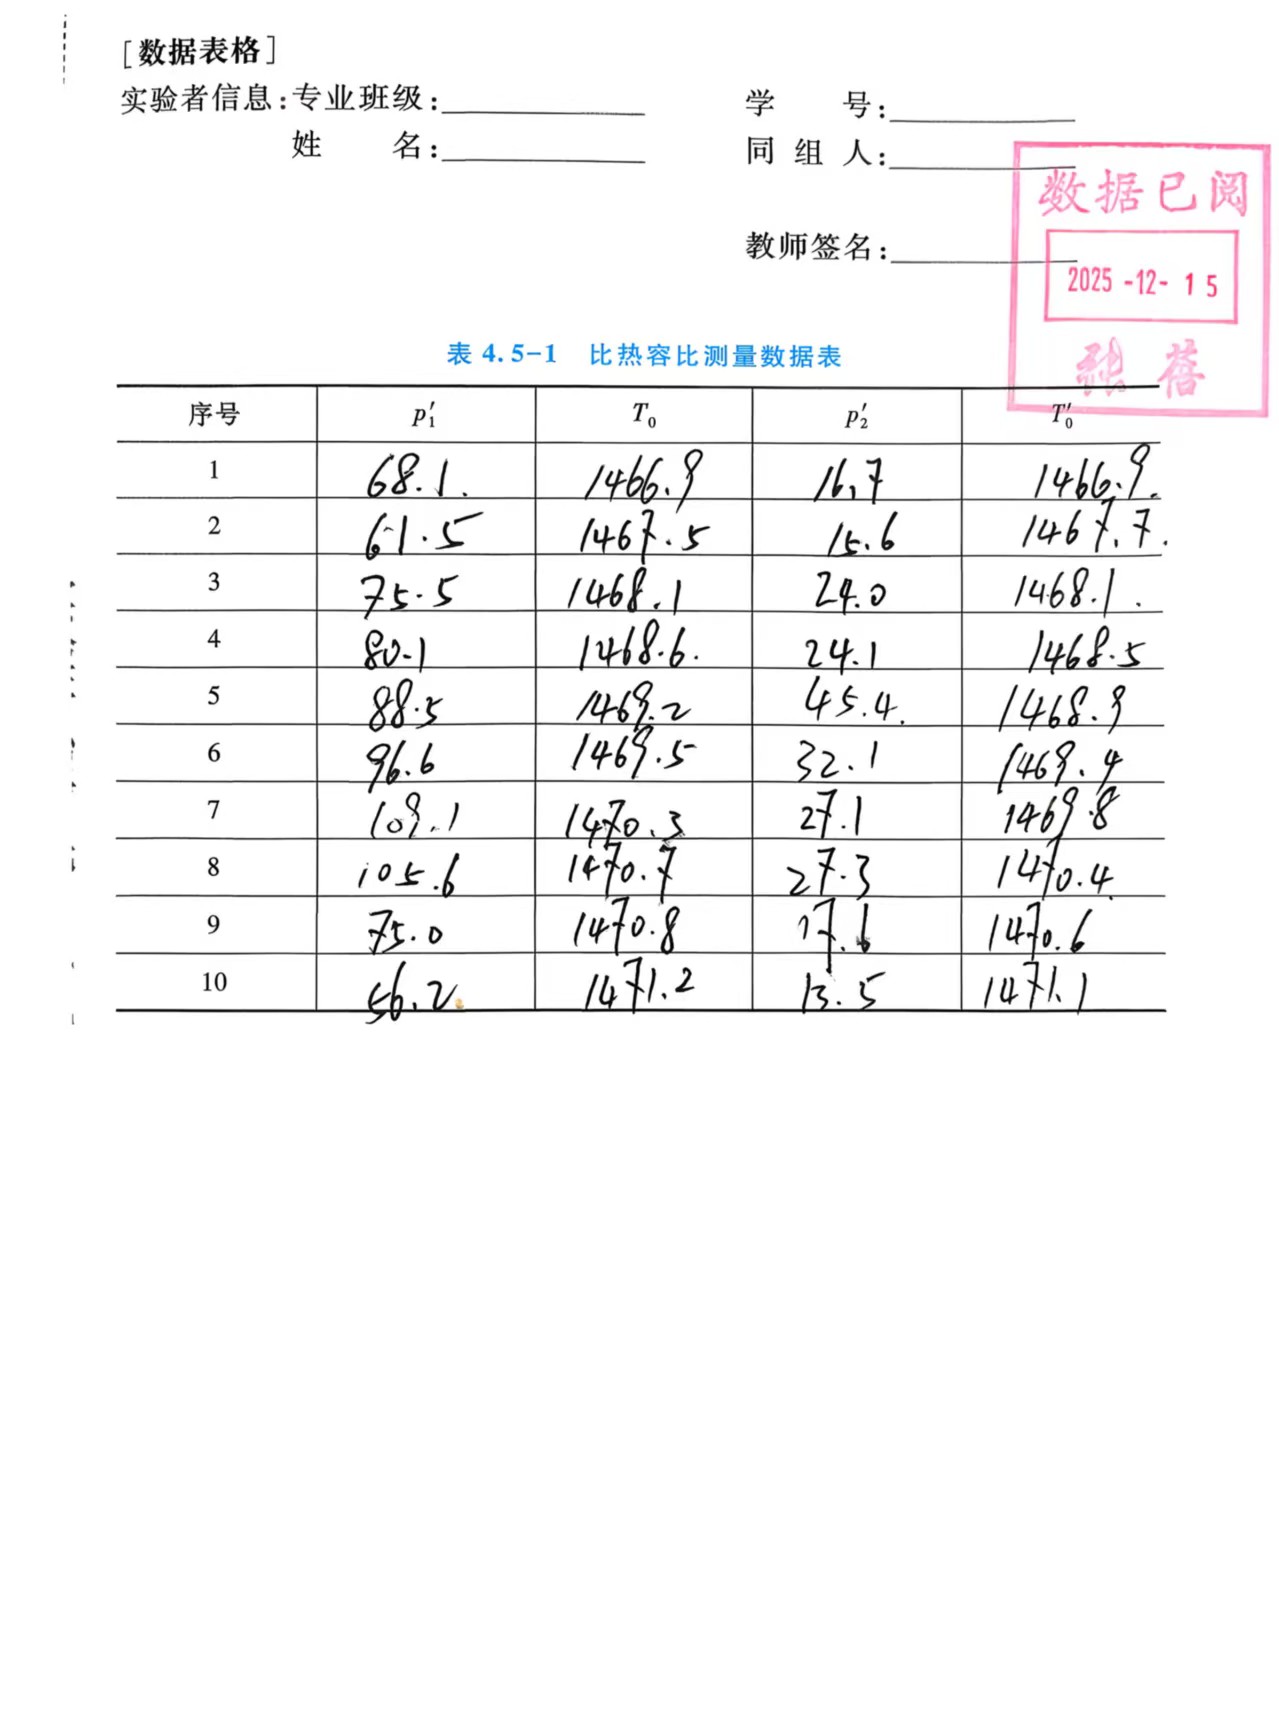 [数据表格]
实验者信息:专业班级:
学 号:
姓 名:
同 组 人:
数据已阅
教师签名:
2025 -12- 15
张 蓓
表 4.5-1 比热容比测量数据表
序号 p′₁ T₀ p′₂ T′₀
1 68.1. 1466.9 16.7 1466.9.
2 61.5 1467.5 15.6 1467.7.
3 75.5 1468.1 24.0 1468.1.
4 80.1 1468.6. 24.1 1468.5
5 88.5 1469.2 45.4. 1468.9
6 96.6 1469.5 32.1 1469.4
7 109.1 1470.3 27.1 1469.8
8 105.6 1470.7 27.3 1470.4
9 75.0 1470.8 17.6 1470.6
10 56.2 1471.2 13.5 1471.1